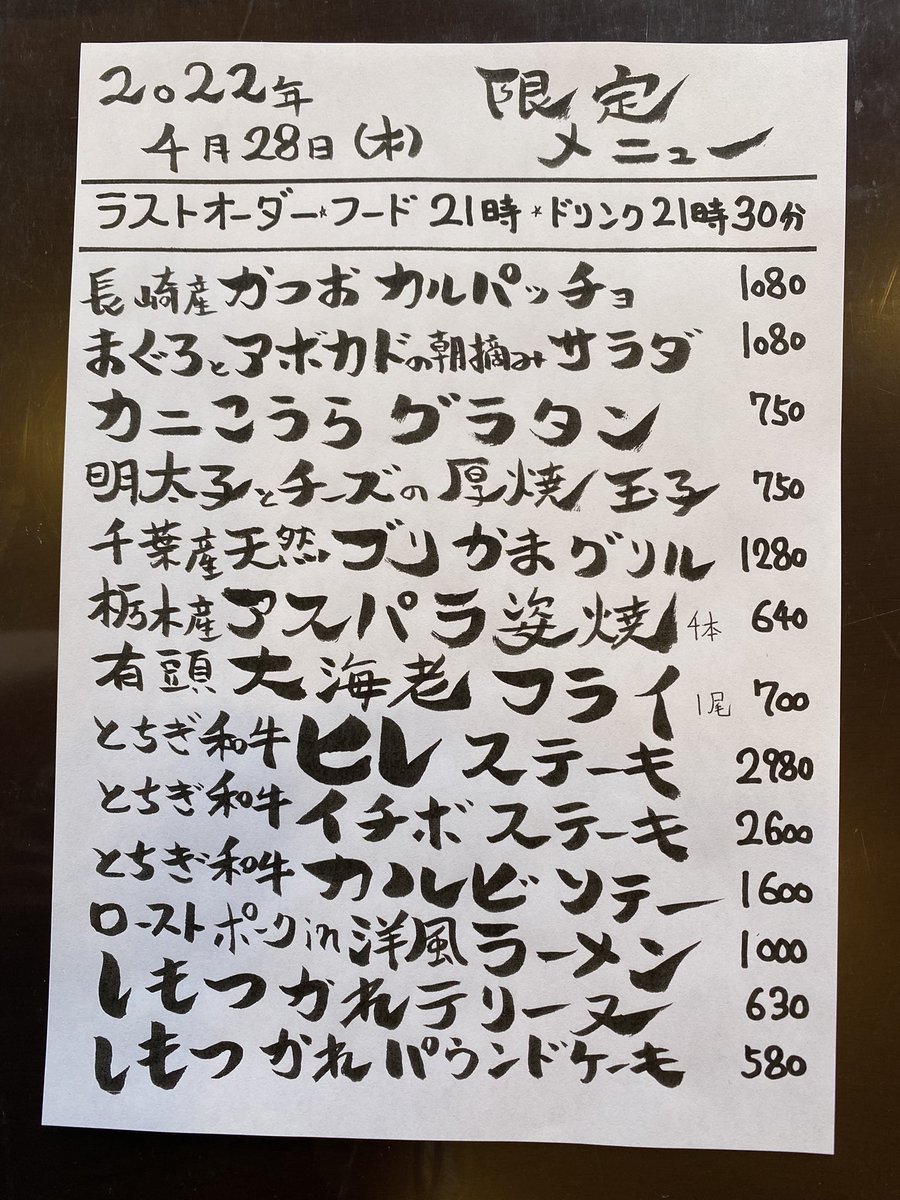 2022年 限定
4月28日(木) メニュー
ラストオーダー*フード 21時*ドリンク21時30分
長崎産かつおカルパッチョ 1080
まぐろとアボカドの朝摘みサラダ 1080
カニこうらグラタン 750
明太子とチーズの厚焼玉子 750
千葉産天然ブリかまグリル 1280
栃木産アスパラ姿焼 4本 640
有頭大海老フライ 1尾 700
とちぎ和牛ヒレステーキ 2980
とちぎ和牛イチボステーキ 2600
とちぎ和牛カルビソテー 1600
ローストポークin洋風ラーメン 1000
しもつかれテリーヌ 630
しもつかれパウンドケーキ 580